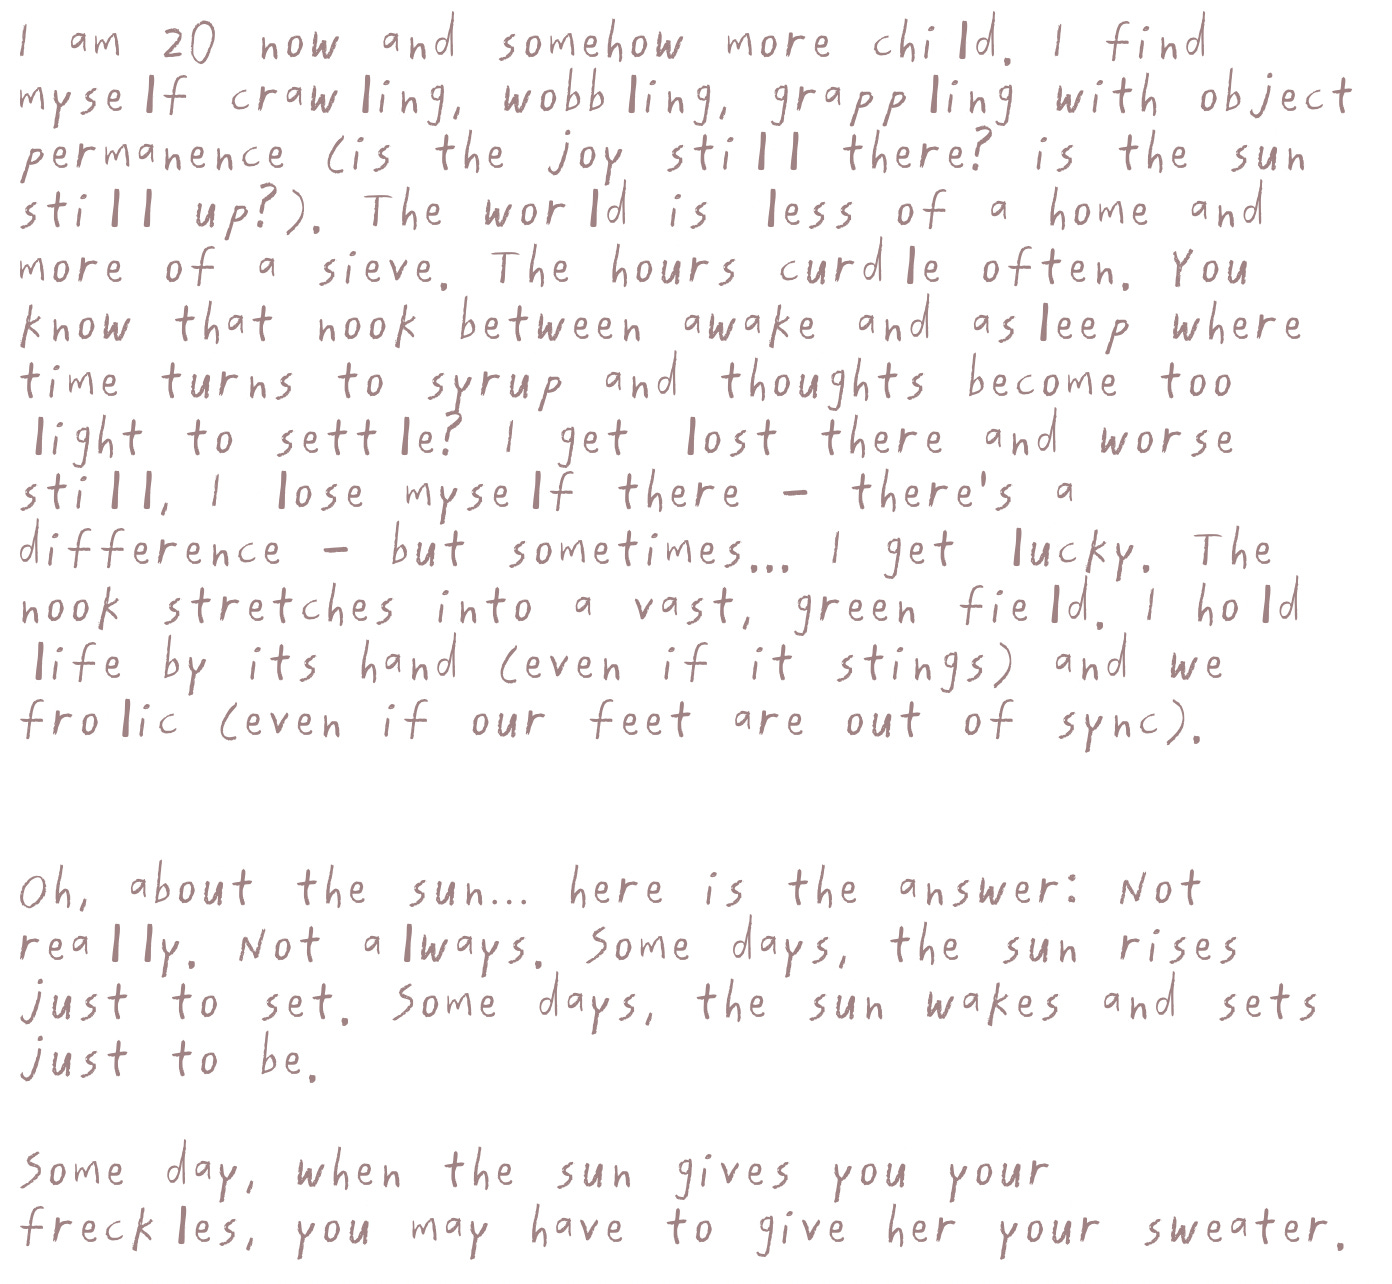 I am 20 now and somehow more child. I find
myself crawling, wobbling, grappling with object
permanence (is the joy still there? is the sun
still up?). The world is less of a home and
more of a sieve. The hours curdle often. You
know that nook between awake and asleep where
time turns to syrup and thoughts become too
light to settle? I get lost there and worse
still, I lose myself there - there's a
difference - but sometimes... I get lucky. The
nook stretches into a vast, green field. I hold
life by its hand (even if it stings) and we
frolic (even if our feet are out of sync).
Oh, about the sun... here is the answer: Not
really. Not always. Some days, the sun rises
just to set. Some days, the sun wakes and sets
just to be.
Some day, when the sun gives you your
freckles, you may have to give her your sweater.